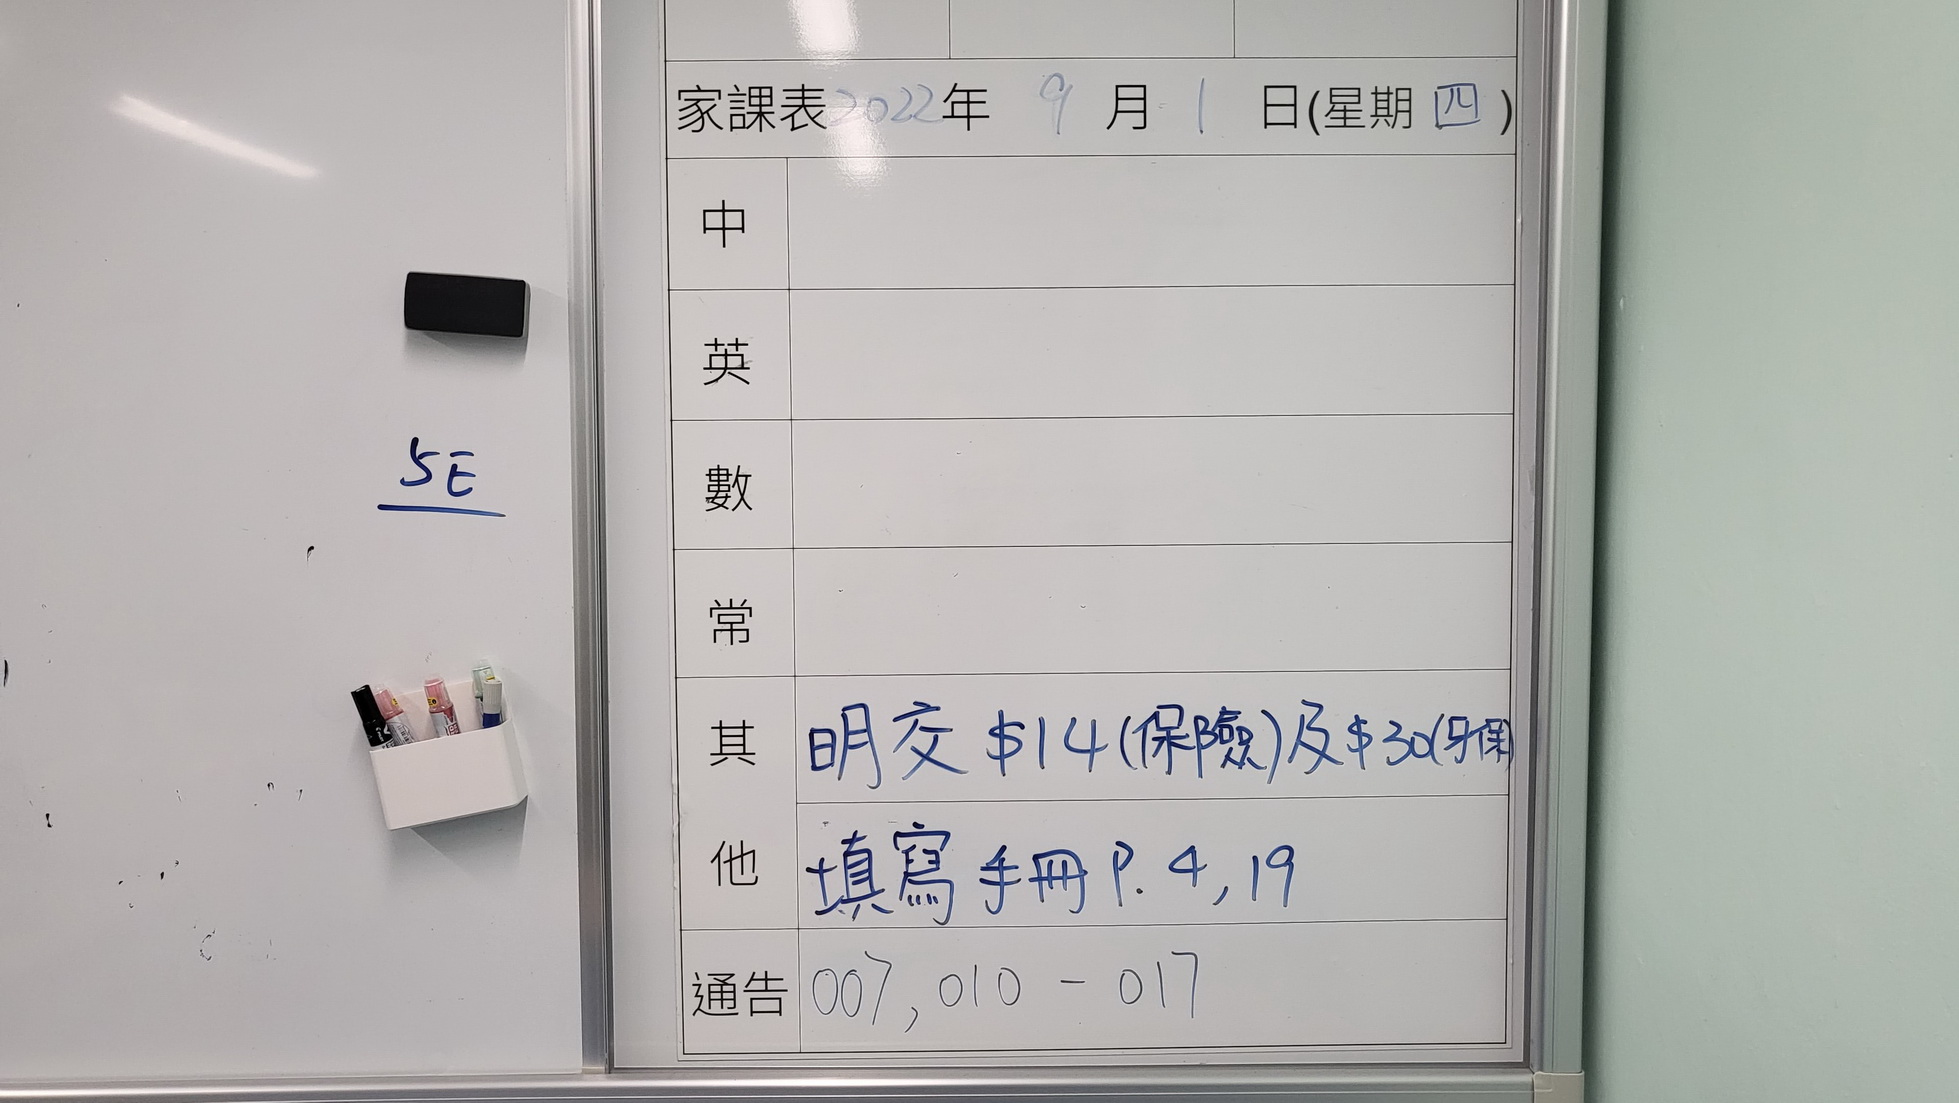 家課表 2022年 9 月 1 日(星期 四 )
5E
中
英
數
常
其他
明交 $14(保險)及$30(牙保)
填寫手冊 P. 4, 19
通告 007, 010 - 017